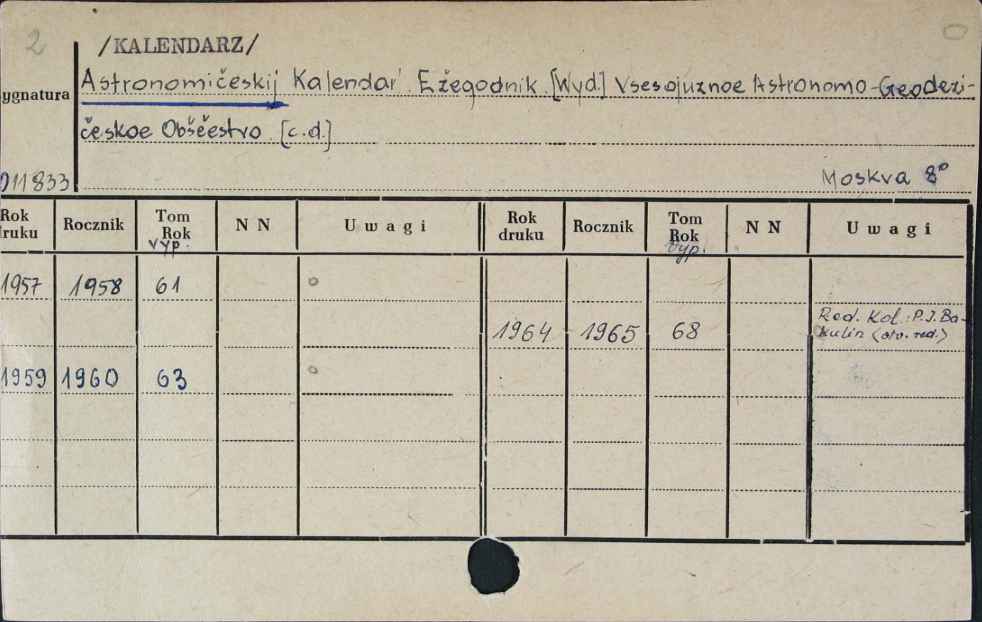 2
/KALENDARZ/
Astronomičeskij Kalendar' Ežegodnik [Wyd.] Vsesojuznoe Astronomo-Geodezi-
ygnatura
českoe Obščestvo [c.d.]
011833
Moskva 8°
Rok druku Rocznik Tom Rok vyp. NN Uwagi Rok druku Rocznik Tom Rok vyp. NN Uwagi
1957 1958 61
1964 1965 68 Red. Kol.: P.I. Ba-
kulin (otv. red.)
1959 1960 63